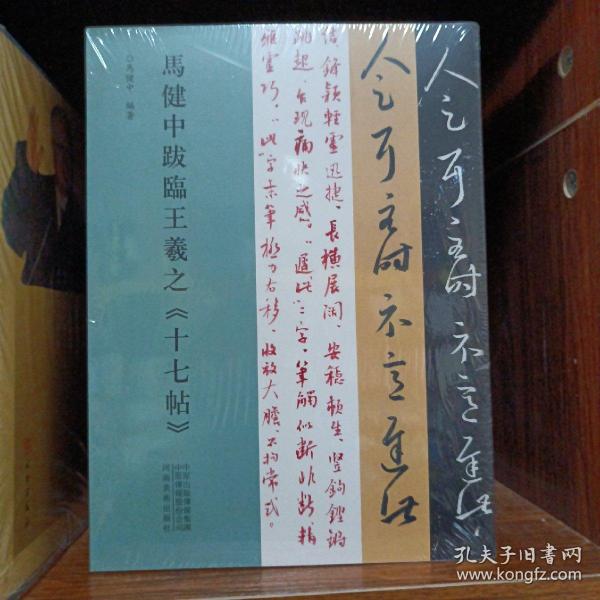 馬健中跋臨王羲之《十七帖》
◎馬健中 編著
中原出版傳媒集團
中原傳媒股份公司
河南美術出版社
使鋒穎輕靈迅捷、長橫展闊、安穩頓生、豎鉤鏗鏘
跳起、台現痛快之感。“遲此”二字，筆觸似斷非斷精
雅靈巧，“此”字末筆極力右移，收放大膽、不拘常式。
孔夫子旧书网
www.kongfz.com